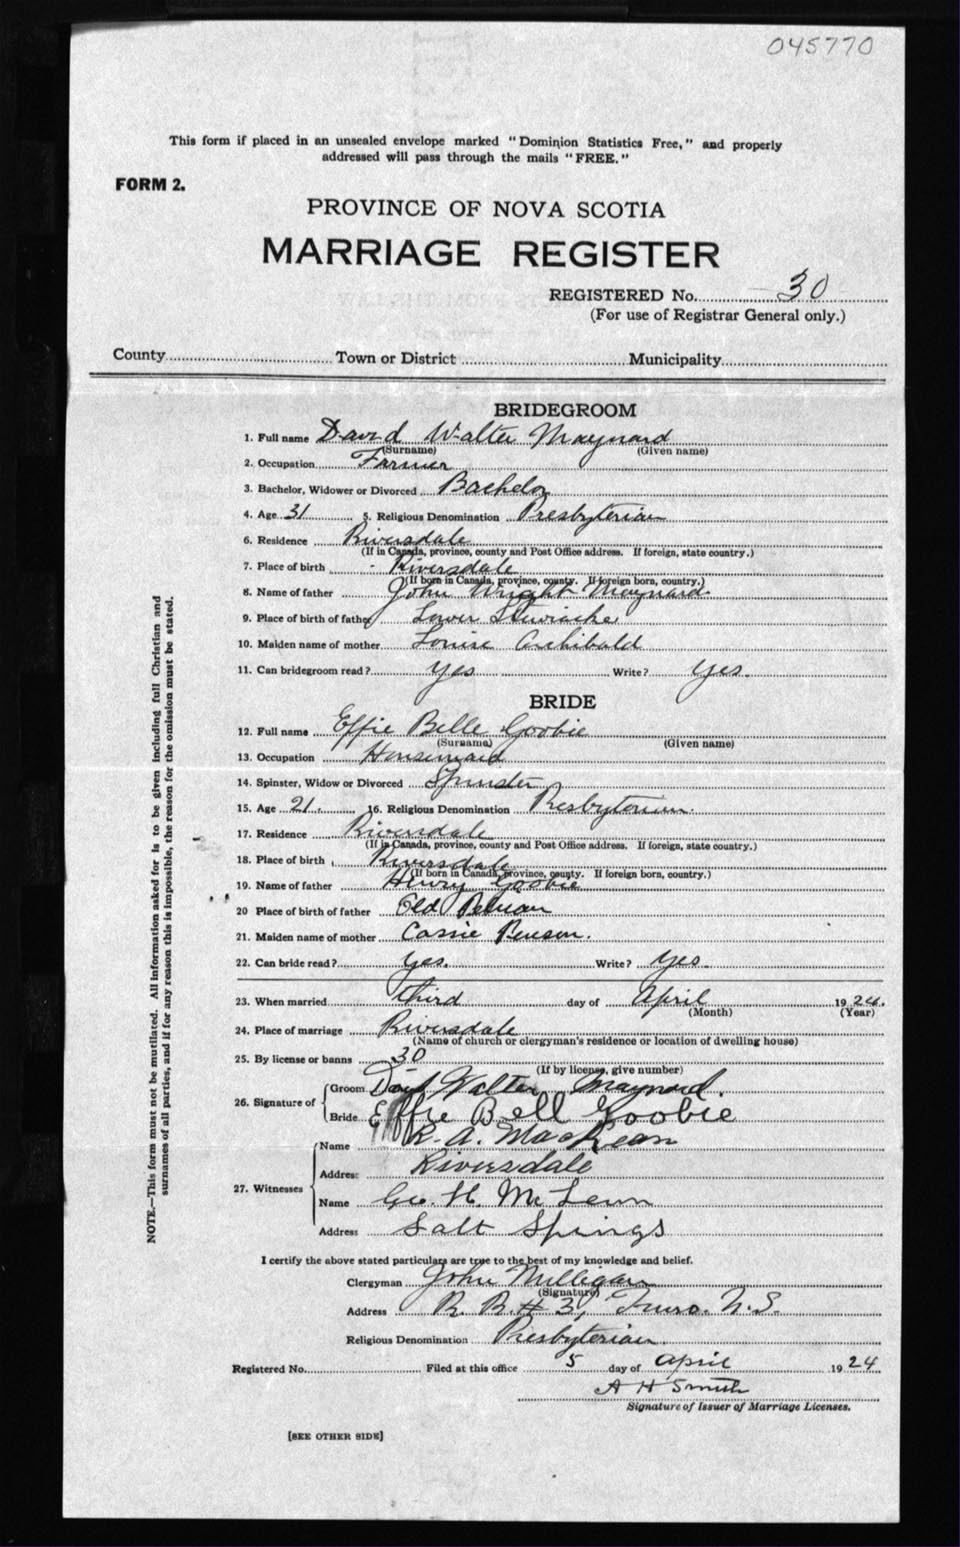 045770
This form if placed in an unsealed envelope marked "Dominion Statistics Free," and properly
addressed will pass through the mails "FREE."
FORM 2.
PROVINCE OF NOVA SCOTIA
MARRIAGE REGISTER
REGISTERED No. 30
(For use of Registrar General only.)
County Town or District Municipality
BRIDEGROOM
1. Full name David Walter Maynard
(Surname) (Given name)
2. Occupation Farmer
3. Bachelor, Widower or Divorced Bachelor
4. Age 31 5. Religious Denomination Presbyterian
6. Residence Riversdale
(If in Canada, province, county and Post Office address. If foreign, state country.)
7. Place of birth Riversdale
(If born in Canada, province, county. If foreign born, country.)
8. Name of father John Wright Maynard
9. Place of birth of father Lower Stewiacke
10. Maiden name of mother Louise Archibald
11. Can bridegroom read? Yes Write? Yes.
BRIDE
12. Full name Effie Belle Goobie
(Surname) (Given name)
13. Occupation Housemaid
14. Spinster, Widow or Divorced Spinster
15. Age 21. 16. Religious Denomination Presbyterian.
17. Residence Riversdale
(If in Canada, province, county and Post Office address. If foreign, state country.)
18. Place of birth Riversdale
(If born in Canada, province, county. If foreign born, country.)
19. Name of father Henry Goobie
20 Place of birth of father Old
21. Maiden name of mother Cassie Benson.
22. Can bride read? Yes. Write? Yes.
23. When married third day of April 1924.
(Month) (Year)
24. Place of marriage Riversdale
(Name of church or clergyman's residence or location of dwelling house)
25. By license or banns 30
(If by license, give number)
26. Signature of
Groom David Walter Maynard.
Bride Effie Bell Goobie
27. Witnesses
Name R. A. MacKean
Address Riversdale
Name Geo. H. McLean
Address Salt Springs
I certify the above stated particulars are true to the best of my knowledge and belief.
Clergyman John Milligan
(Signature)
Address R. R. # 3, Truro. N.S.
Religious Denomination Presbyterian.
Registered No. Filed at this office 5 day of April 1924
A H Smith
Signature of Issuer of Marriage Licenses.
[SEE OTHER SIDE]
NOTE.—This form must not be mutilated. All information asked for is to be given including full Christian and
surnames of all parties, and if for any reason this is impossible, the reason for the omission must be stated.